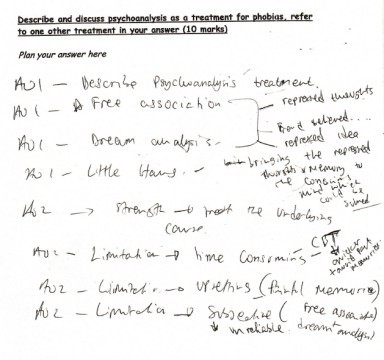 Describe and discuss psychoanalysis as a treatment for phobias, refer
to one other treatment in your answer (10 marks)
Plan your answer here
AO1 – Describe Psychoanalysis treatment.
AO1 – Free association
repressed thoughts
AO1 – Dream analysis
believed....
repressed idea
AO1 – Little Hans. – bringing the repressed
thoughts memory to
the conscious
mind
could be
solved
AO2 → Strength → treat the underlying
cause.
AO2 – Limitation → time consuming – CBT
AO2 – Limitation → upsetting (painful memories)
AO2 – Limitation → Subjective (Free association
unreliable. dream analysis)